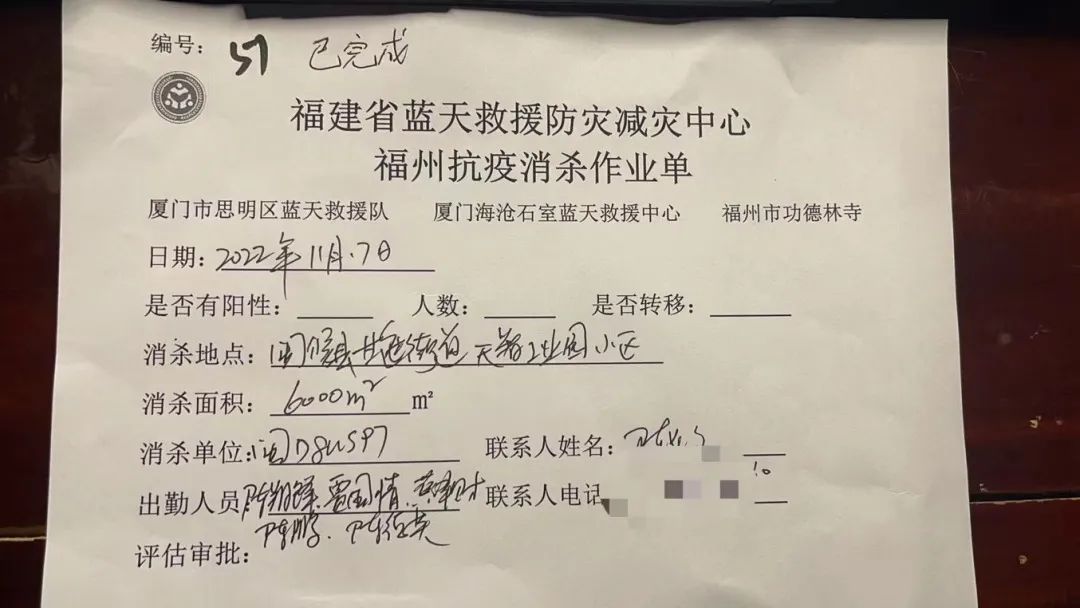 编号: 57 已完成
福建省蓝天救援防灾减灾中心
福州抗疫消杀作业单
厦门市思明区蓝天救援队 厦门海沧石室蓝天救援中心 福州市功德林寺
日期: 2022年11月.7日
是否有阳性: 人数: 是否转移:
消杀地点: 闽侯县甘蔗街道 工业园小区
消杀面积: 6000m² m²
消杀单位: 闽D8US97 联系人姓名:
出勤人员 雷国情、 联系人电话
陈鹏、
评估审批: